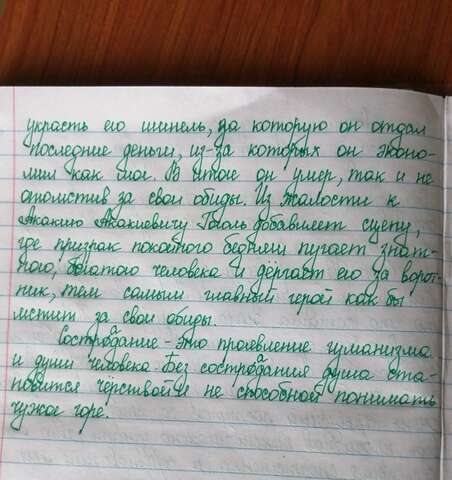 украсть его шинель, за которую он отдал
последние деньги, из-за которых он эконо-
мил как мог. В итоге он умер, так и не
отомстив за свои обиды. Из жалости к
Акакию Акакиевичу Гоголь добавляет сцену,
где призрак покойного бедняги пугает знат-
ного, богатого человека и дёргает его за ворот-
ник, тем самым главный герой как бы
мстит за свои обиды.
Сострадание - это проявление гуманизма
и души человека. Без сострадания душа ста-
новится черствой и не способной понимать
чужое горе.